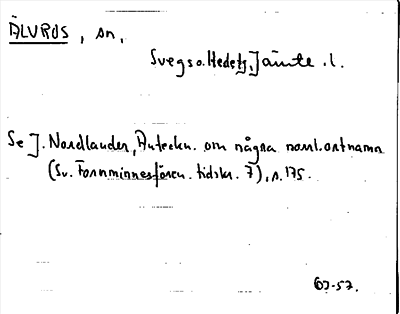 ÄLVROS, sn,
Svegs o. Hedes, Jämtl. l.
Se J. Nordlander, Anteckn. om några norrl. ortnamn
(Sv. Fornminnesfören. tidskr. 7), s. 175.